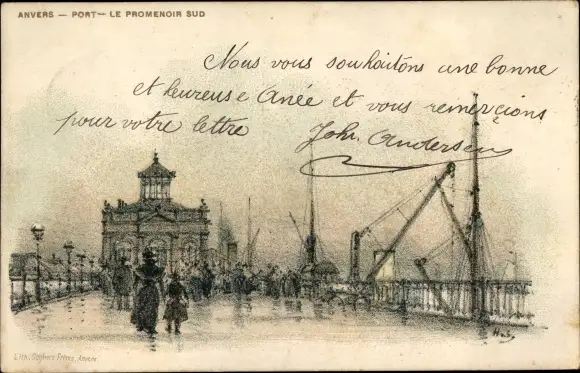 ANVERS — PORT — LE PROMENOIR SUD
Nous vous souhaitons une bonne
et heureuse Anée et vous remerçions
pour votre lettre Joh. Andersen
Lith. Frères, Anvers